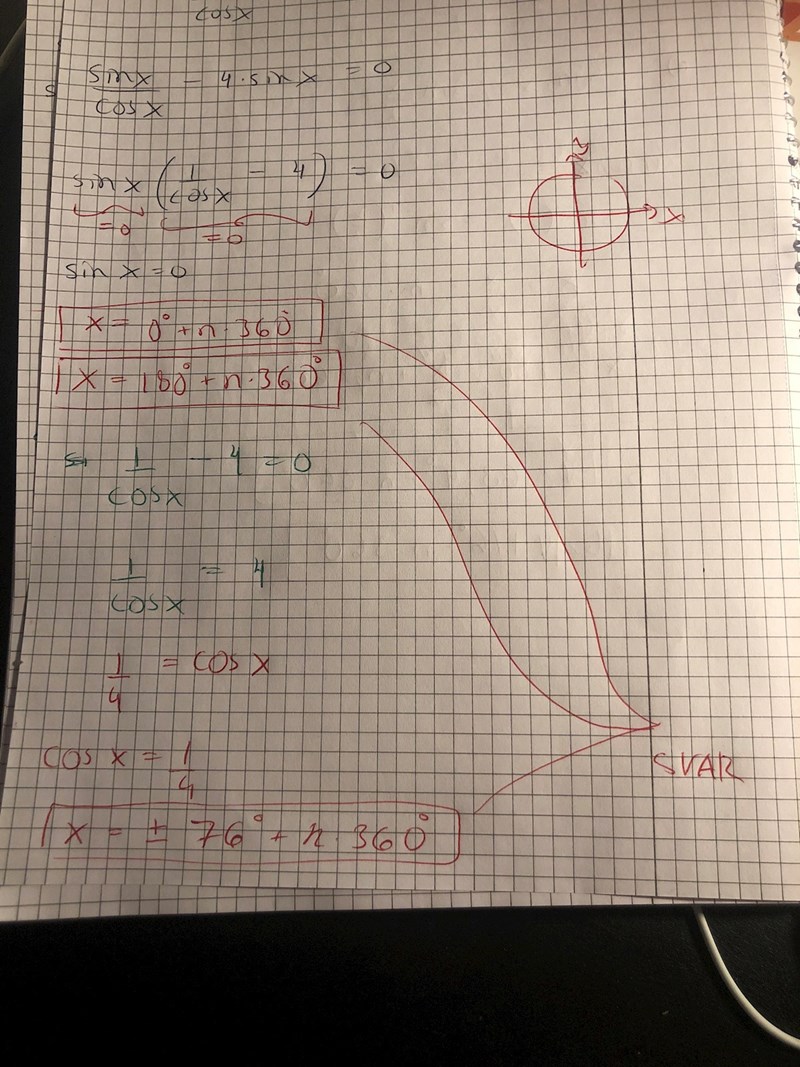 cosx
sinx/cosx - 4·sinx = 0
y
sinx (1/cosx - 4) = 0
x
=0 =0
sin x = 0
x = 0° + n·360°
x = 180° + n·360°
1/cosx - 4 = 0
1/cosx = 4
1/4 = cosx
cosx = 1/4
SVAR
x = ± 76° + n·360°